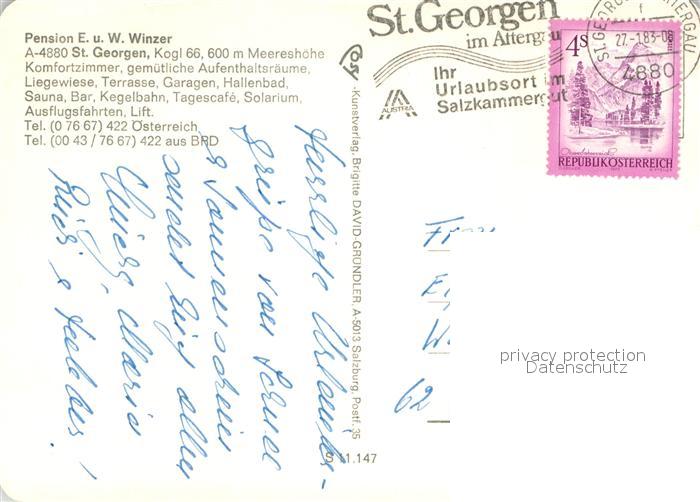 Pension E. u. W. Winzer
A-4880 St. Georgen, Kogl 66, 600 m Meereshöhe
Komfortzimmer, gemütliche Aufenthaltsräume,
Liegewiese, Terrasse, Garagen, Hallenbad,
Sauna, Bar, Kegelbahn, Tagescafé, Solarium,
Ausflugsfahrten, Lift.
Tel. (0 76 67) 422 Österreich
Tel. (00 43 / 76 67) 422 aus BRD
Herzliche Urlaubs-
grüße von Schnee
Sonnenschein
sendet Euch allen
Maria
-Kunstverlag, Brigitte DAVID-GRÜNDLER, A-5013 Salzburg, Postf. 35
S 11.147
St.Georgen
im Attergau
Ihr
Urlaubsort im
Salzkammergut
AUSTRIA
27.-1.83-08
4880
4S
REPUBLIK ÖSTERREICH
62
privacy protection
Datenschutz